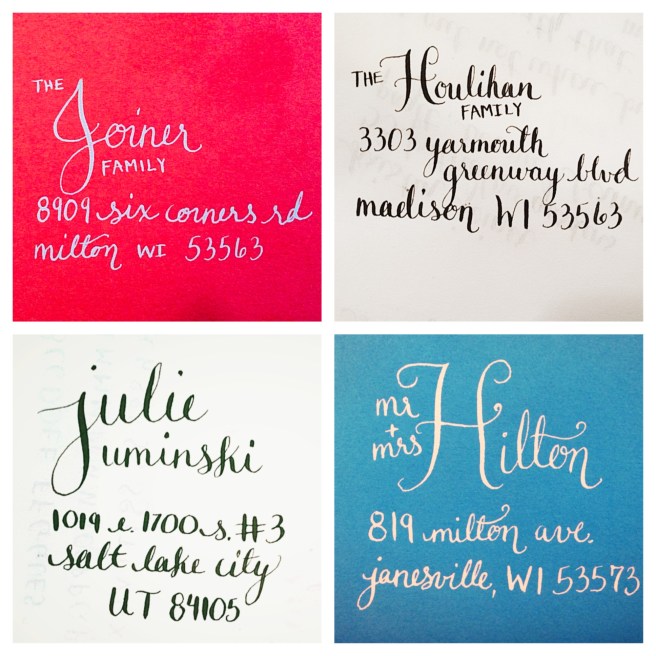 THE
Joiner
FAMILY
8909 six corners rd
milton WI 53563
THE Houlihan
FAMILY
3303 yarmouth
greenway blvd
madison WI 53563
julie
uminski
1019 e. 1700 s. #3
salt lake city
UT 84105
mr
+
mrs Hilton
819 milton ave.
janesville, WI 53573